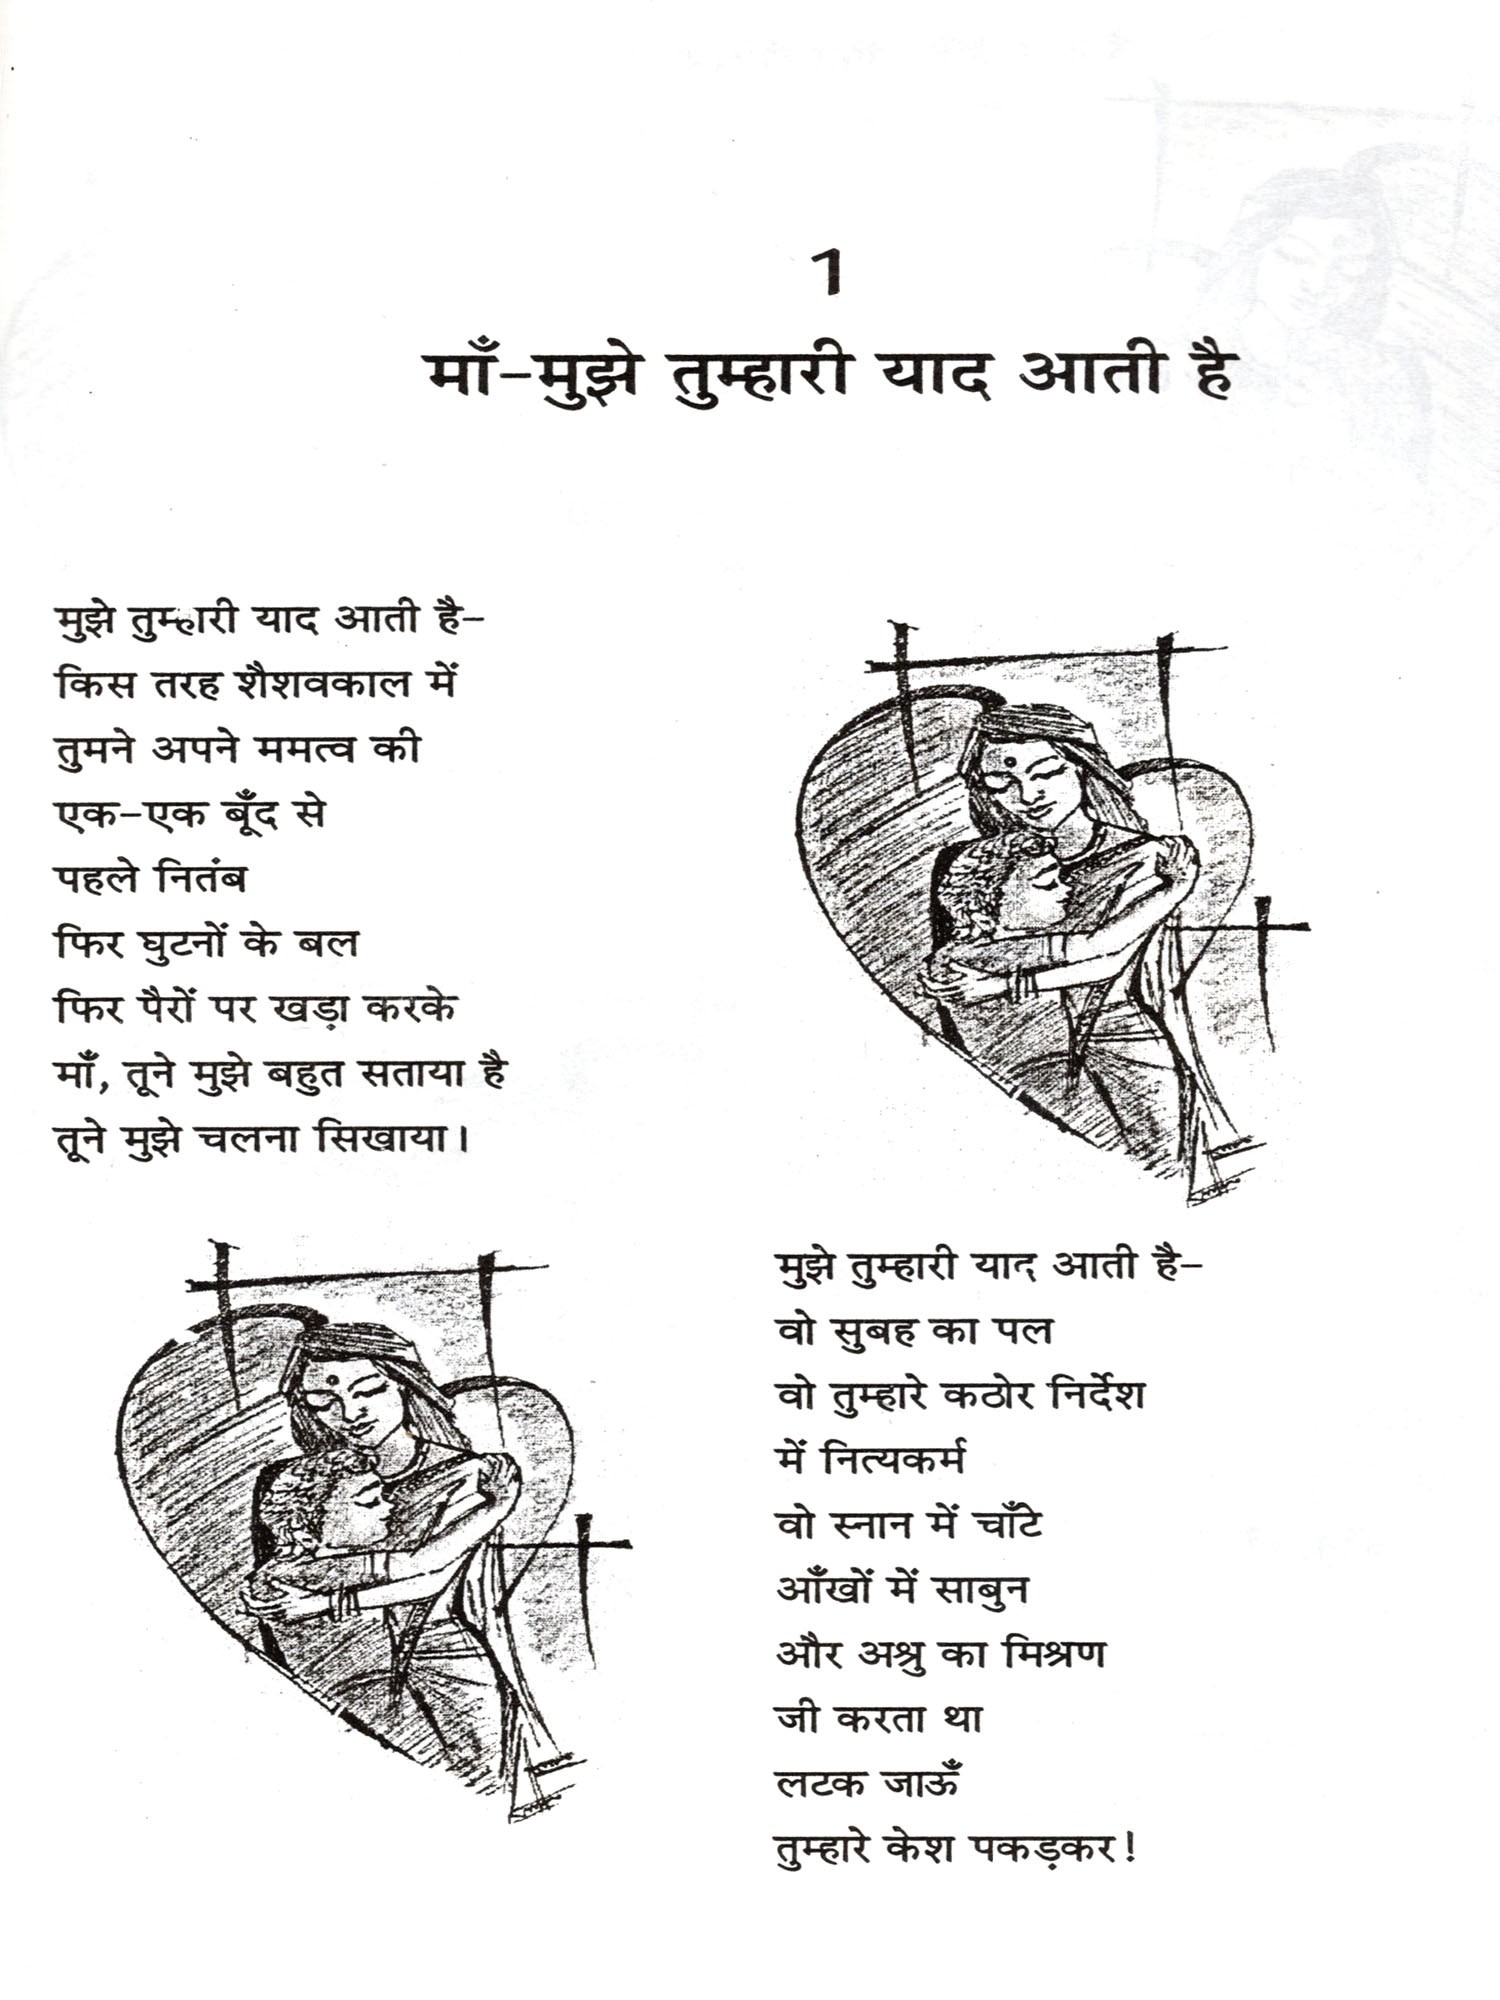 1
माँ-मुझे तुम्हारी याद आती है
मुझे तुम्हारी याद आती है-
किस तरह शैशवकाल में
तुमने अपने ममत्व की
एक-एक बूँद से
पहले नितंब
फिर घुटनों के बल
फिर पैरों पर खड़ा करके
माँ, तूने मुझे बहुत सताया है
तूने मुझे चलना सिखाया।
मुझे तुम्हारी याद आती है-
वो सुबह का पल
वो तुम्हारे कठोर निर्देश
में नित्यकर्म
वो स्नान में चाँटे
आँखों में साबुन
और अश्रु का मिश्रण
जी करता था
लटक जाऊँ
तुम्हारे केश पकड़कर!